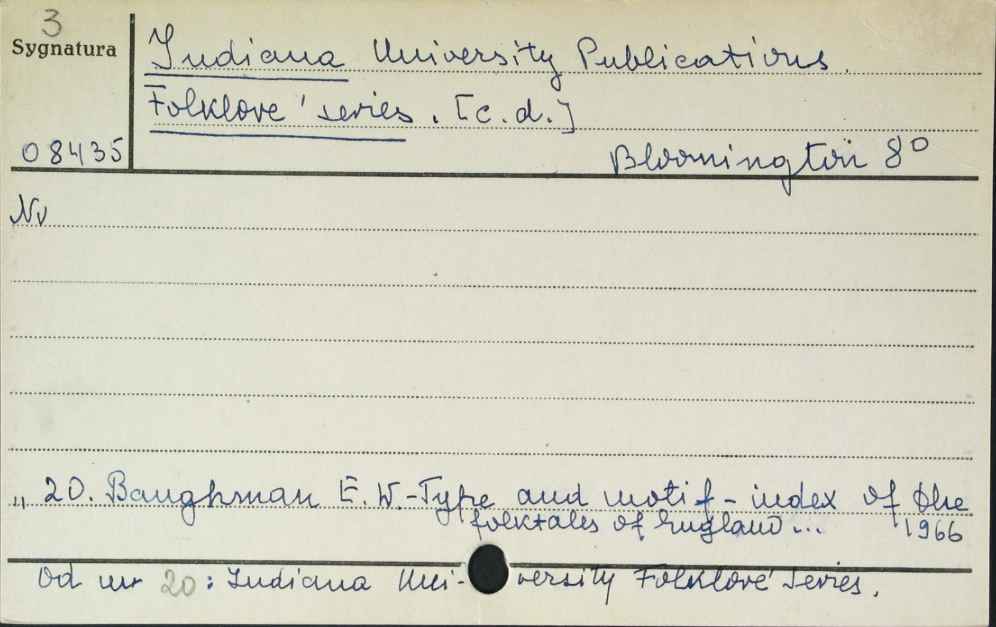 3
Sygnatura
Indiana University Publications.
Folklore series. [c.d.]
08435
Bloomington 8°
Nr
„ 20. Baughman E. W. - Type and motif - index of the
folktales of England... 1966
Od nr 20: Indiana Uni-versity Folklore Series.